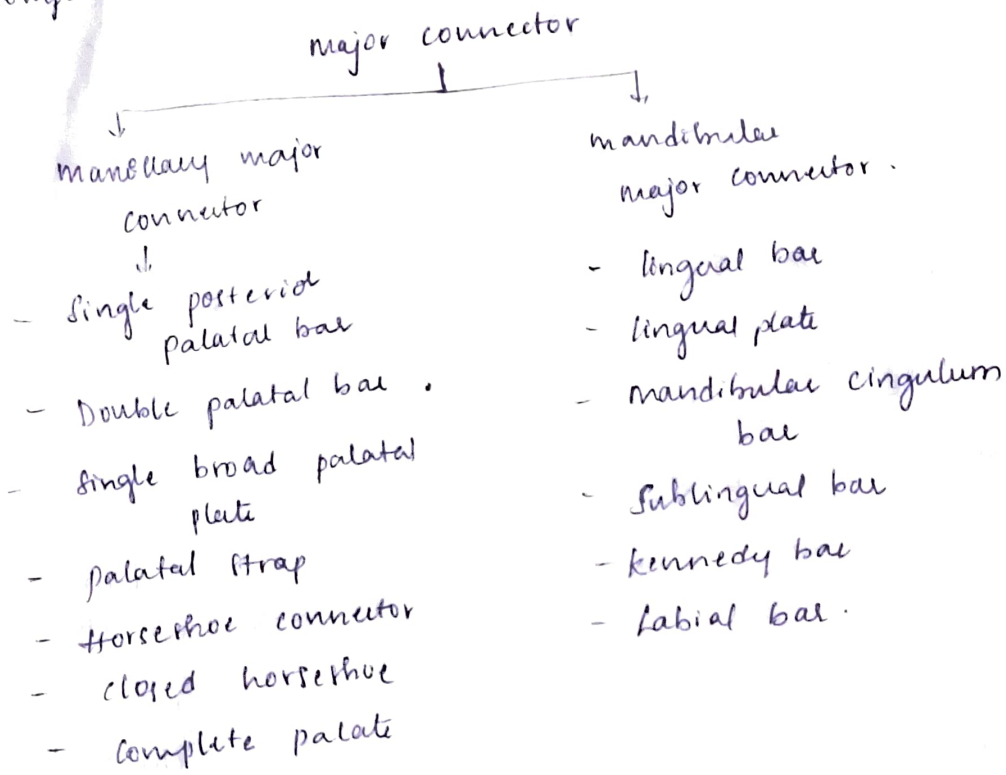 major connector
maxillary major
connector
- Single posterior
palatal bar
- Double palatal bar .
- Single broad palatal
plate
- palatal strap
- Horseshoe connector
- closed horseshoe
- complete palate
mandibular
major connector .
- lingual bar
- lingual plate
- mandibular cingulum
bar
- Sublingual bar
- kennedy bar
- Labial bar .